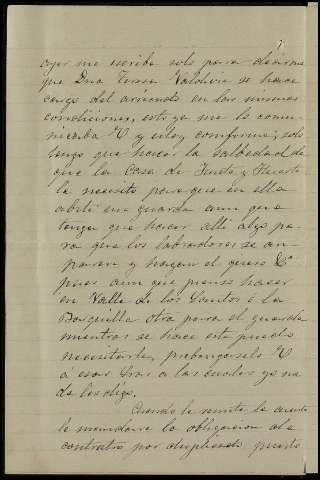 ayer me escribe solo para decirme
que Dña Teresa Valdivia se hace
cargo del arriendo en las mismas
condiciones, esto ya me lo comu-
nicaba V y estoy conforme; solo
tengo que hacer la salbedad de
que la Casa de Fuente y Huerta
la necesito para que en ella
abite un guarda aun que
tenga que hacer alli algo pa-
ra que los labradores se am-
paren y hagan el queso &ª
pues aun que pienso hacer
en Valle de los Santos ó la
Bosquilla otra para el guarda
mientras se hace esta puedo
necesitarla, propongaselo V
á esos Sras a las cuales ya na-
da les digo.
Cuando le remita la cuenta
le mandare la obligacion ó el
contrato por duplicado, puesto